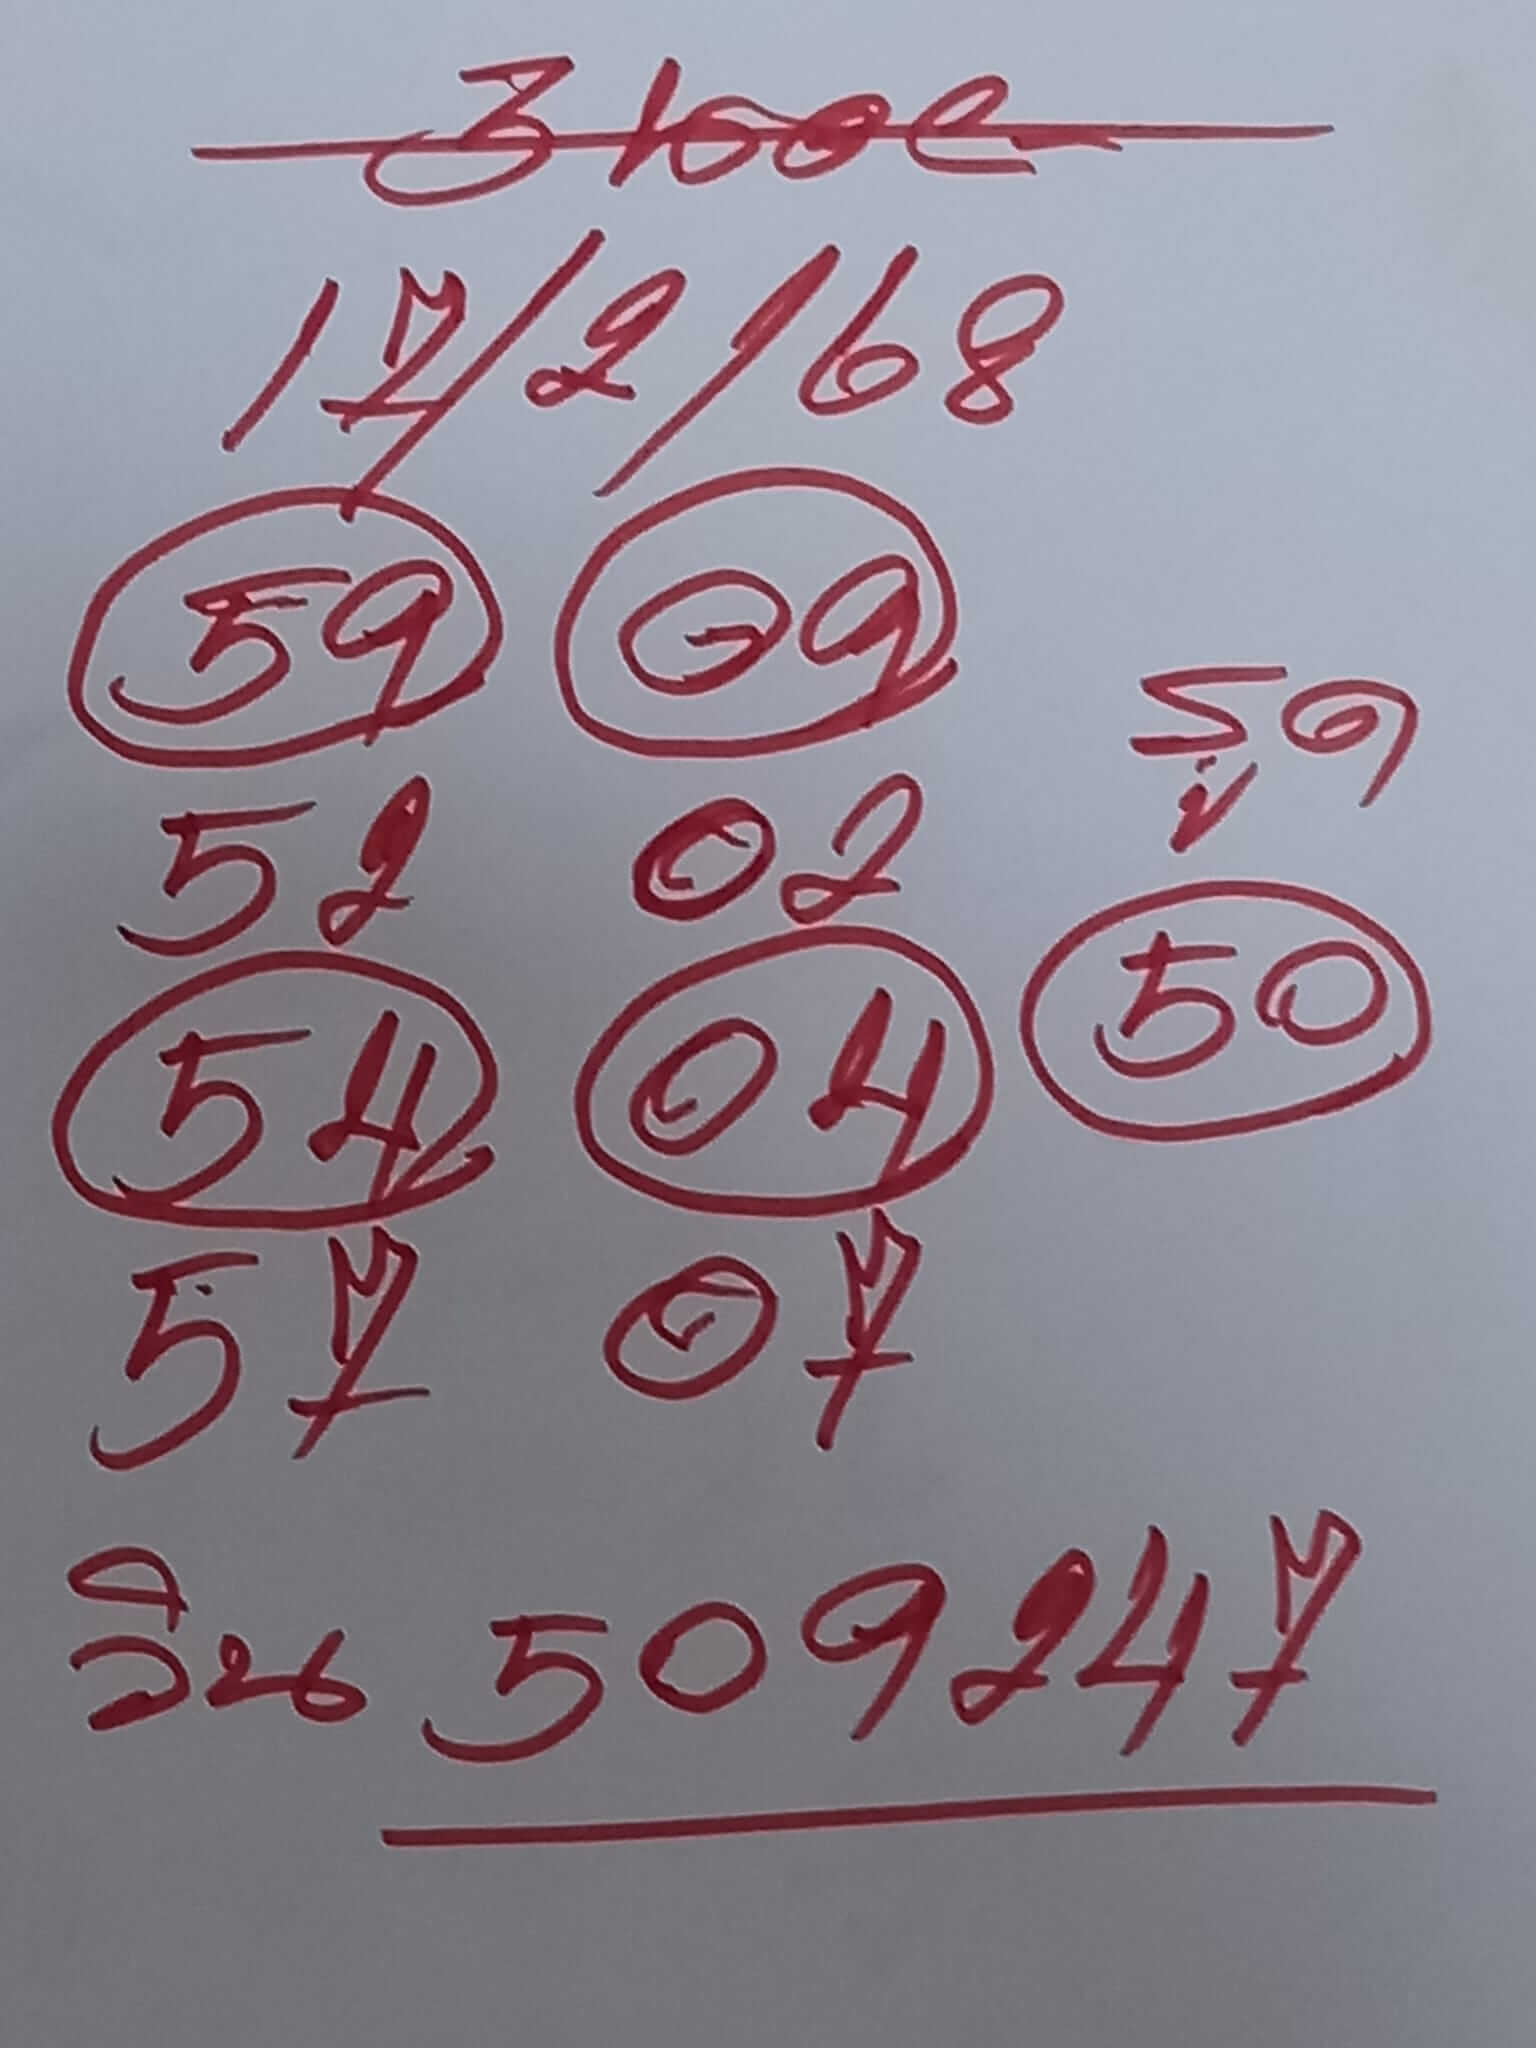 17/2/68
59 09
รูด
52 02
50
54 04
57 07
วิน 509247